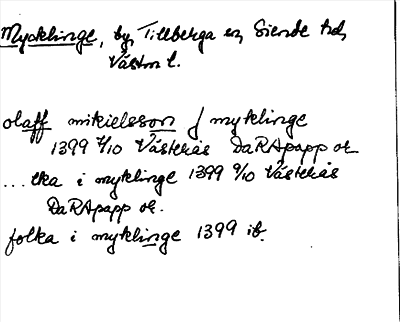 Mycklinge, by, Tillberga sn, Siende hd,
Västm l.
olaff mikielsson j myklinge
1399 9/10 Västerås DaRApapp or.
...cka i myklinge 1399 9/10 Västerås
DaRApapp or.
folka i myklinge 1399 ib.